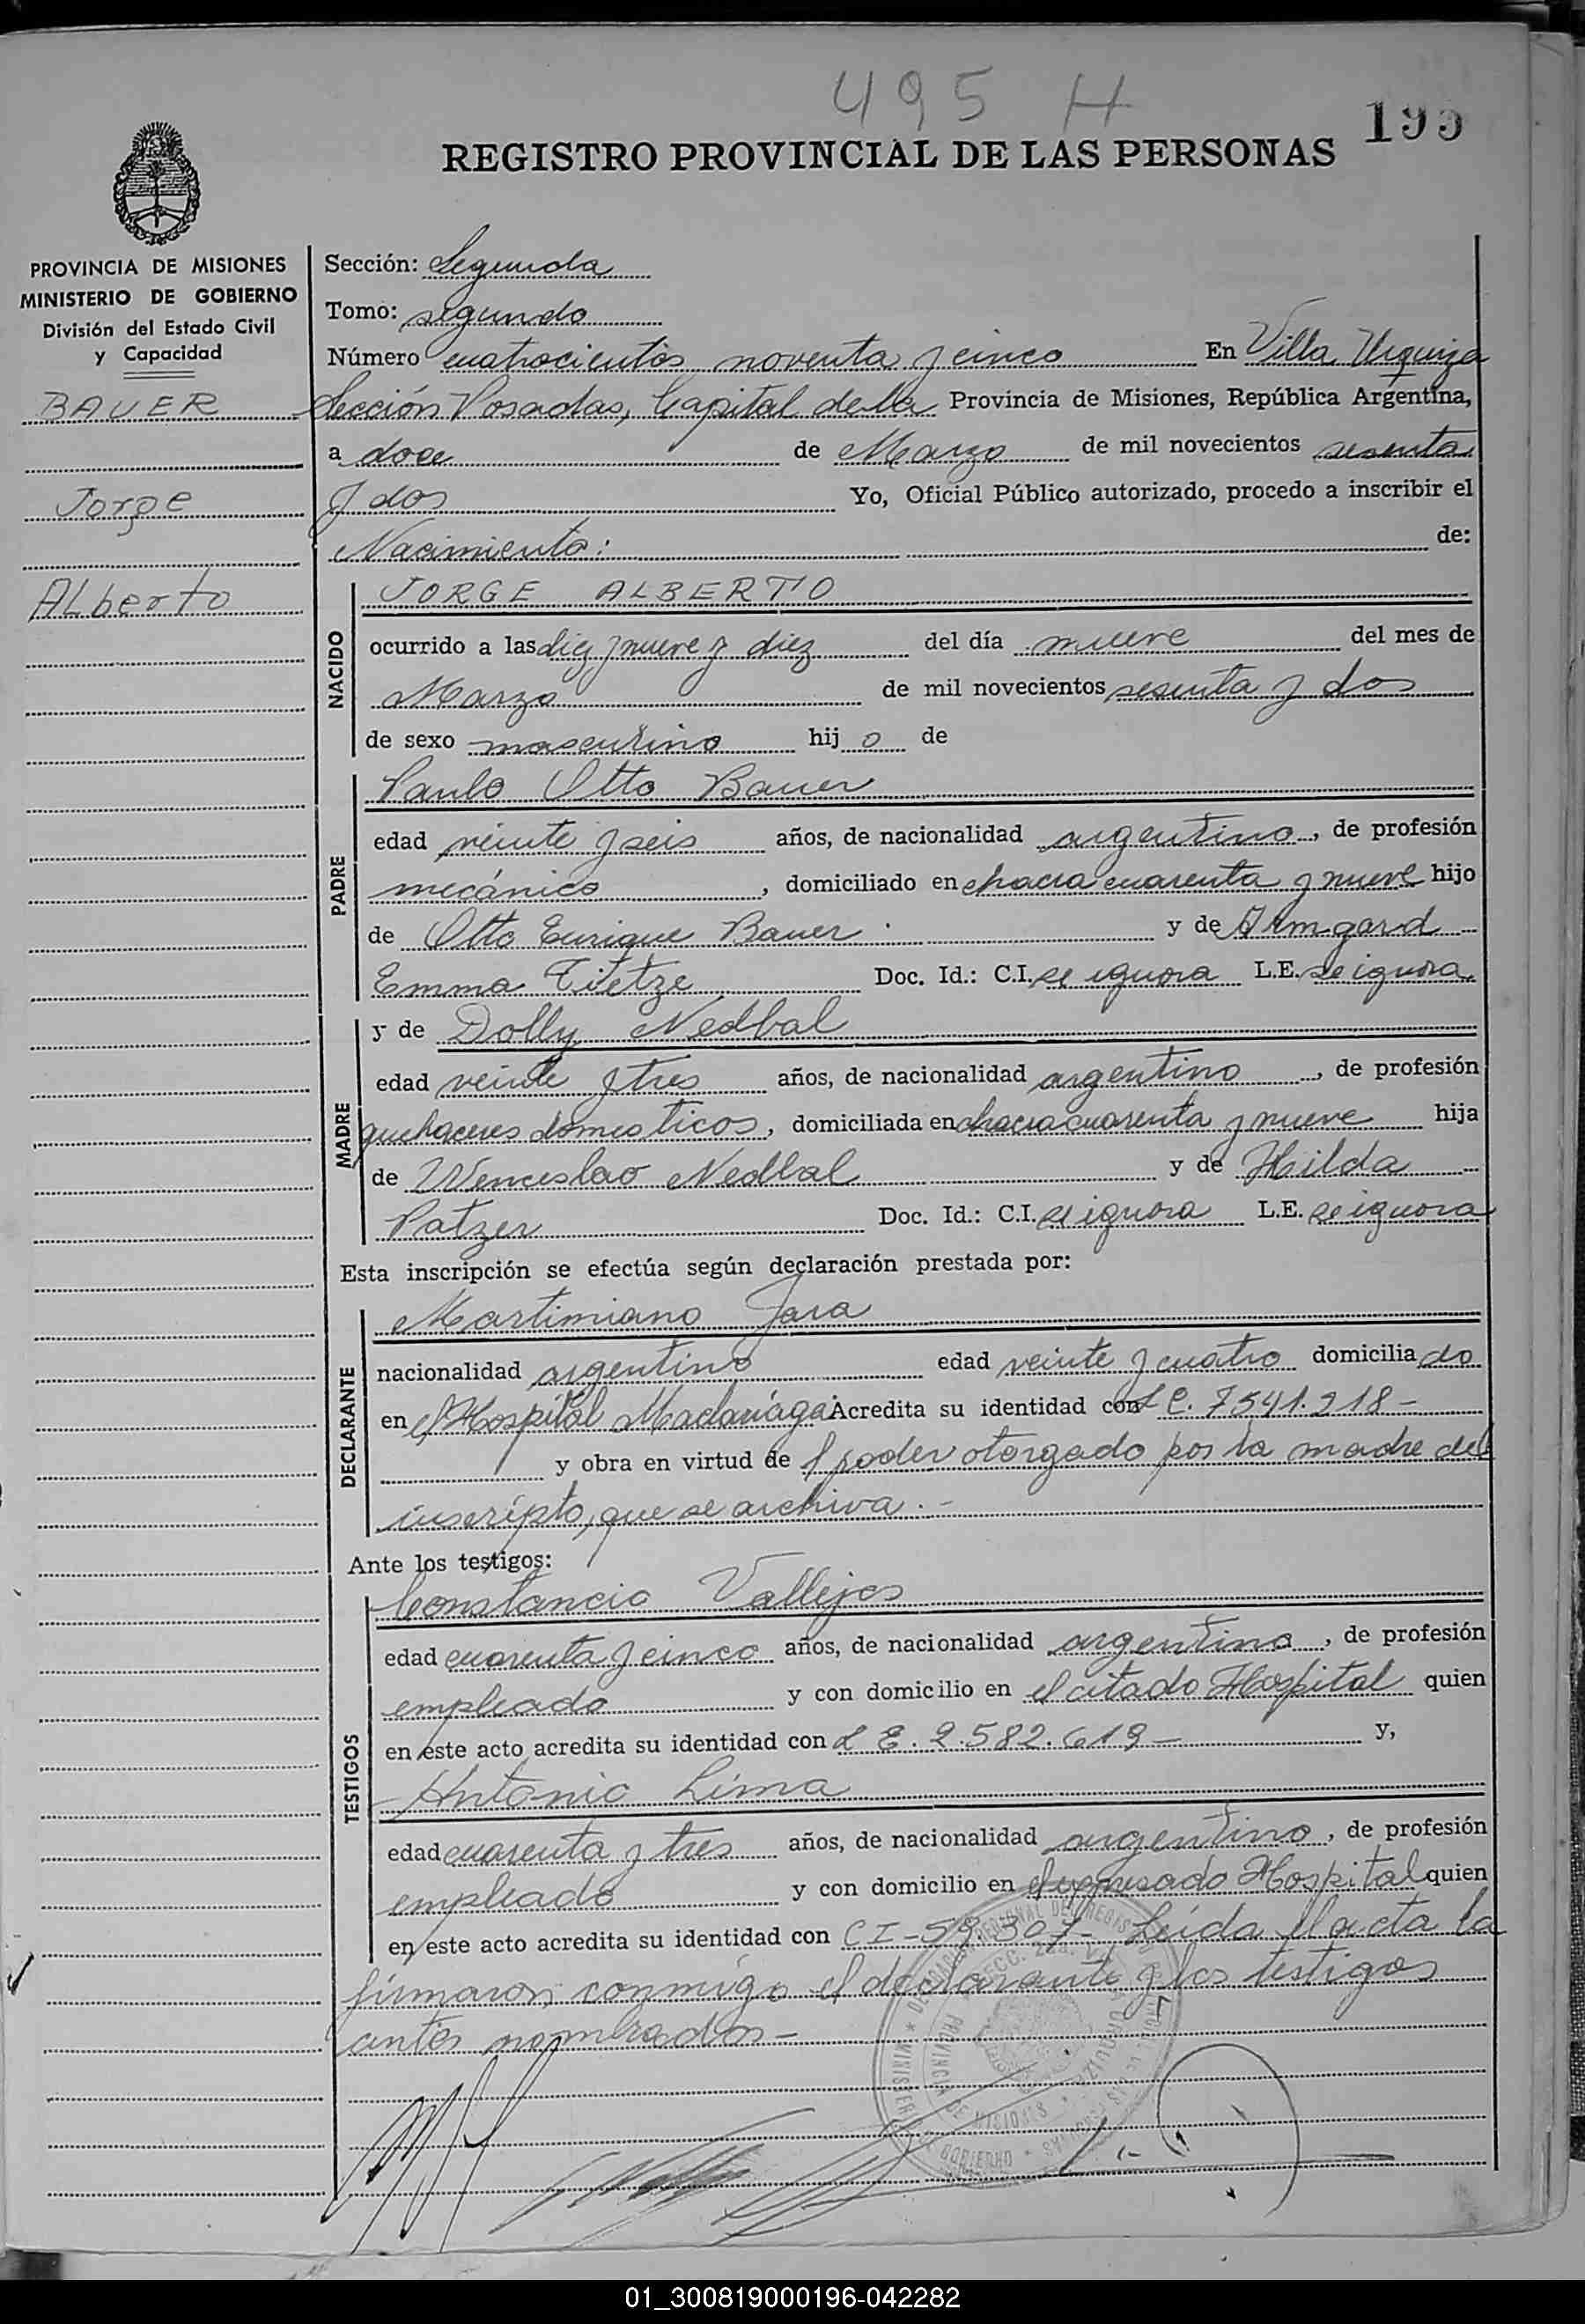 495 H
195
REGISTRO PROVINCIAL DE LAS PERSONAS
PROVINCIA DE MISIONES
MINISTERIO DE GOBIERNO
División del Estado Civil
y Capacidad
BAUER
Jorge
Alberto
Sección: Segunda
Tomo: segundo
Número cuatrocientos noventa y cinco En Villa Urquiza
Sección Posadas, Capital de la Provincia de Misiones, República Argentina,
a doce de Marzo de mil novecientos sesenta
y dos Yo, Oficial Público autorizado, procedo a inscribir el
Nacimiento: de:
NACIDO
JORGE ALBERTO
ocurrido a las diez y nueve y diez del día nueve del mes de
Marzo de mil novecientos sesenta y dos
de sexo masculino hijo de
PADRE
Paulo Otto Bauer
edad veinte y seis años, de nacionalidad argentino, de profesión
mecánico, domiciliado en chacra cuarenta y nueve hijo
de Otto Enrique Bauer y de Armgard
Emma Tietze Doc. Id.: C.I. se ignora L.E. se ignora
MADRE
y de Dolly Nedbal
edad veinte y tres años, de nacionalidad argentino, de profesión
quehaceres domesticos, domiciliada en chacra cuarenta y nueve hija
de Wenceslao Nedbal y de Hilda
Patzer Doc. Id.: C.I. se ignora L.E. se ignora
Esta inscripción se efectúa según declaración prestada por:
DECLARANTE
Martimiano Jara
nacionalidad argentino edad veinte y cuatro domiciliado
en el Hospital Madariaga Acredita su identidad con L E. 7541.218-
y obra en virtud de l poder otorgado por la madre del
inscripto, que se archiva.-
Ante los testigos:
TESTIGOS
Constancio Vallejos
edad cuarenta y cinco años, de nacionalidad argentino, de profesión
empleado y con domicilio en el citado Hospital quien
en este acto acredita su identidad con L E. 2.582.619- y,
Antonio Lima
edad cuarenta y tres años, de nacionalidad argentino, de profesión
empleado y con domicilio en el expresado Hospital quien
en este acto acredita su identidad con CI-59.307- Leida el acta la
firmaron conmigo el declarante y los testigos
antes nombrados-
01_300819000196-042282